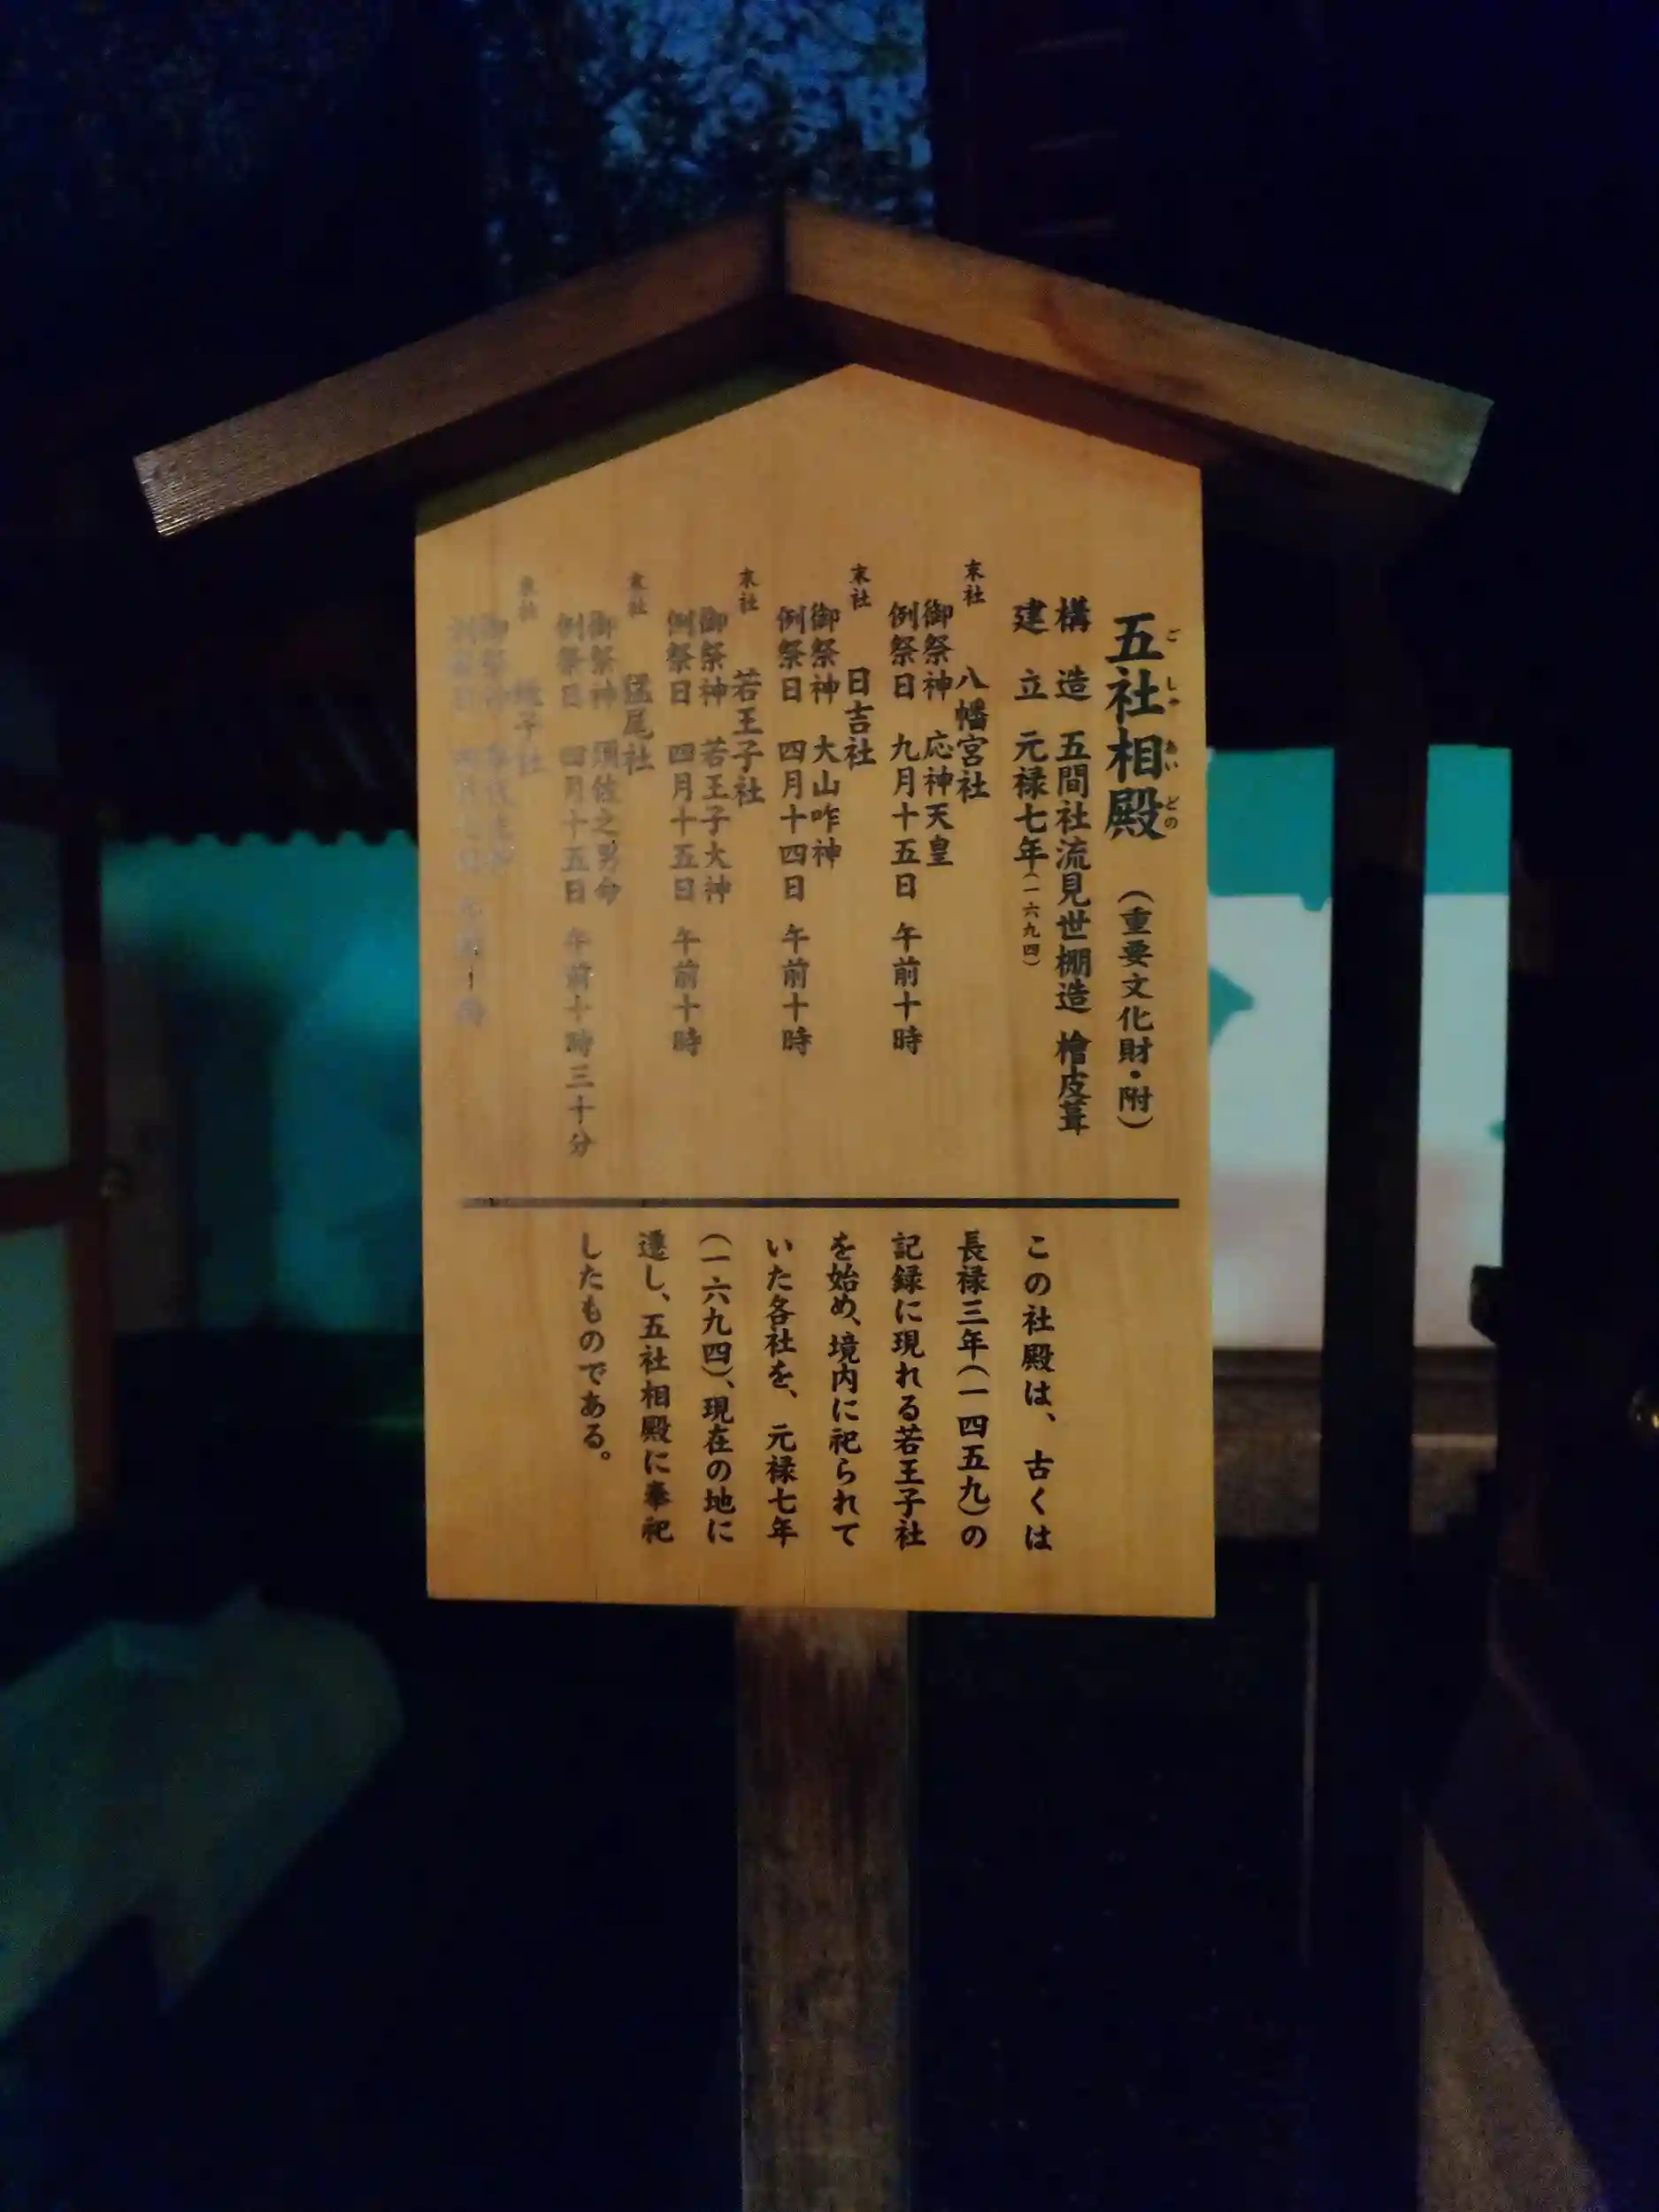 五社相殿 (重要文化財・附)
ごしゃあいどの
構造 五間社流見世棚造 檜皮葺
建立 元禄七年(一六九四)
末社 八幡宮社
御祭神 応神天皇
例祭日 九月十五日 午前十時
末社 日吉社
御祭神 大山咋神
例祭日 四月十四日 午前十時
末社 若王子社
御祭神 若王子大神
例祭日 四月十五日 午前十時
末社 猛尾社
御祭神 須佐之男命
例祭日 四月十五日 午前十時三十分
末社 蛭子社
御祭神
例祭日
この社殿は、古くは
長禄三年(一四五九)の
記録に現れる若王子社
を始め、境内に祀られて
いた各社を、元禄七年
(一六九四)、現在の地に
遷し、五社相殿に奉祀
したものである。